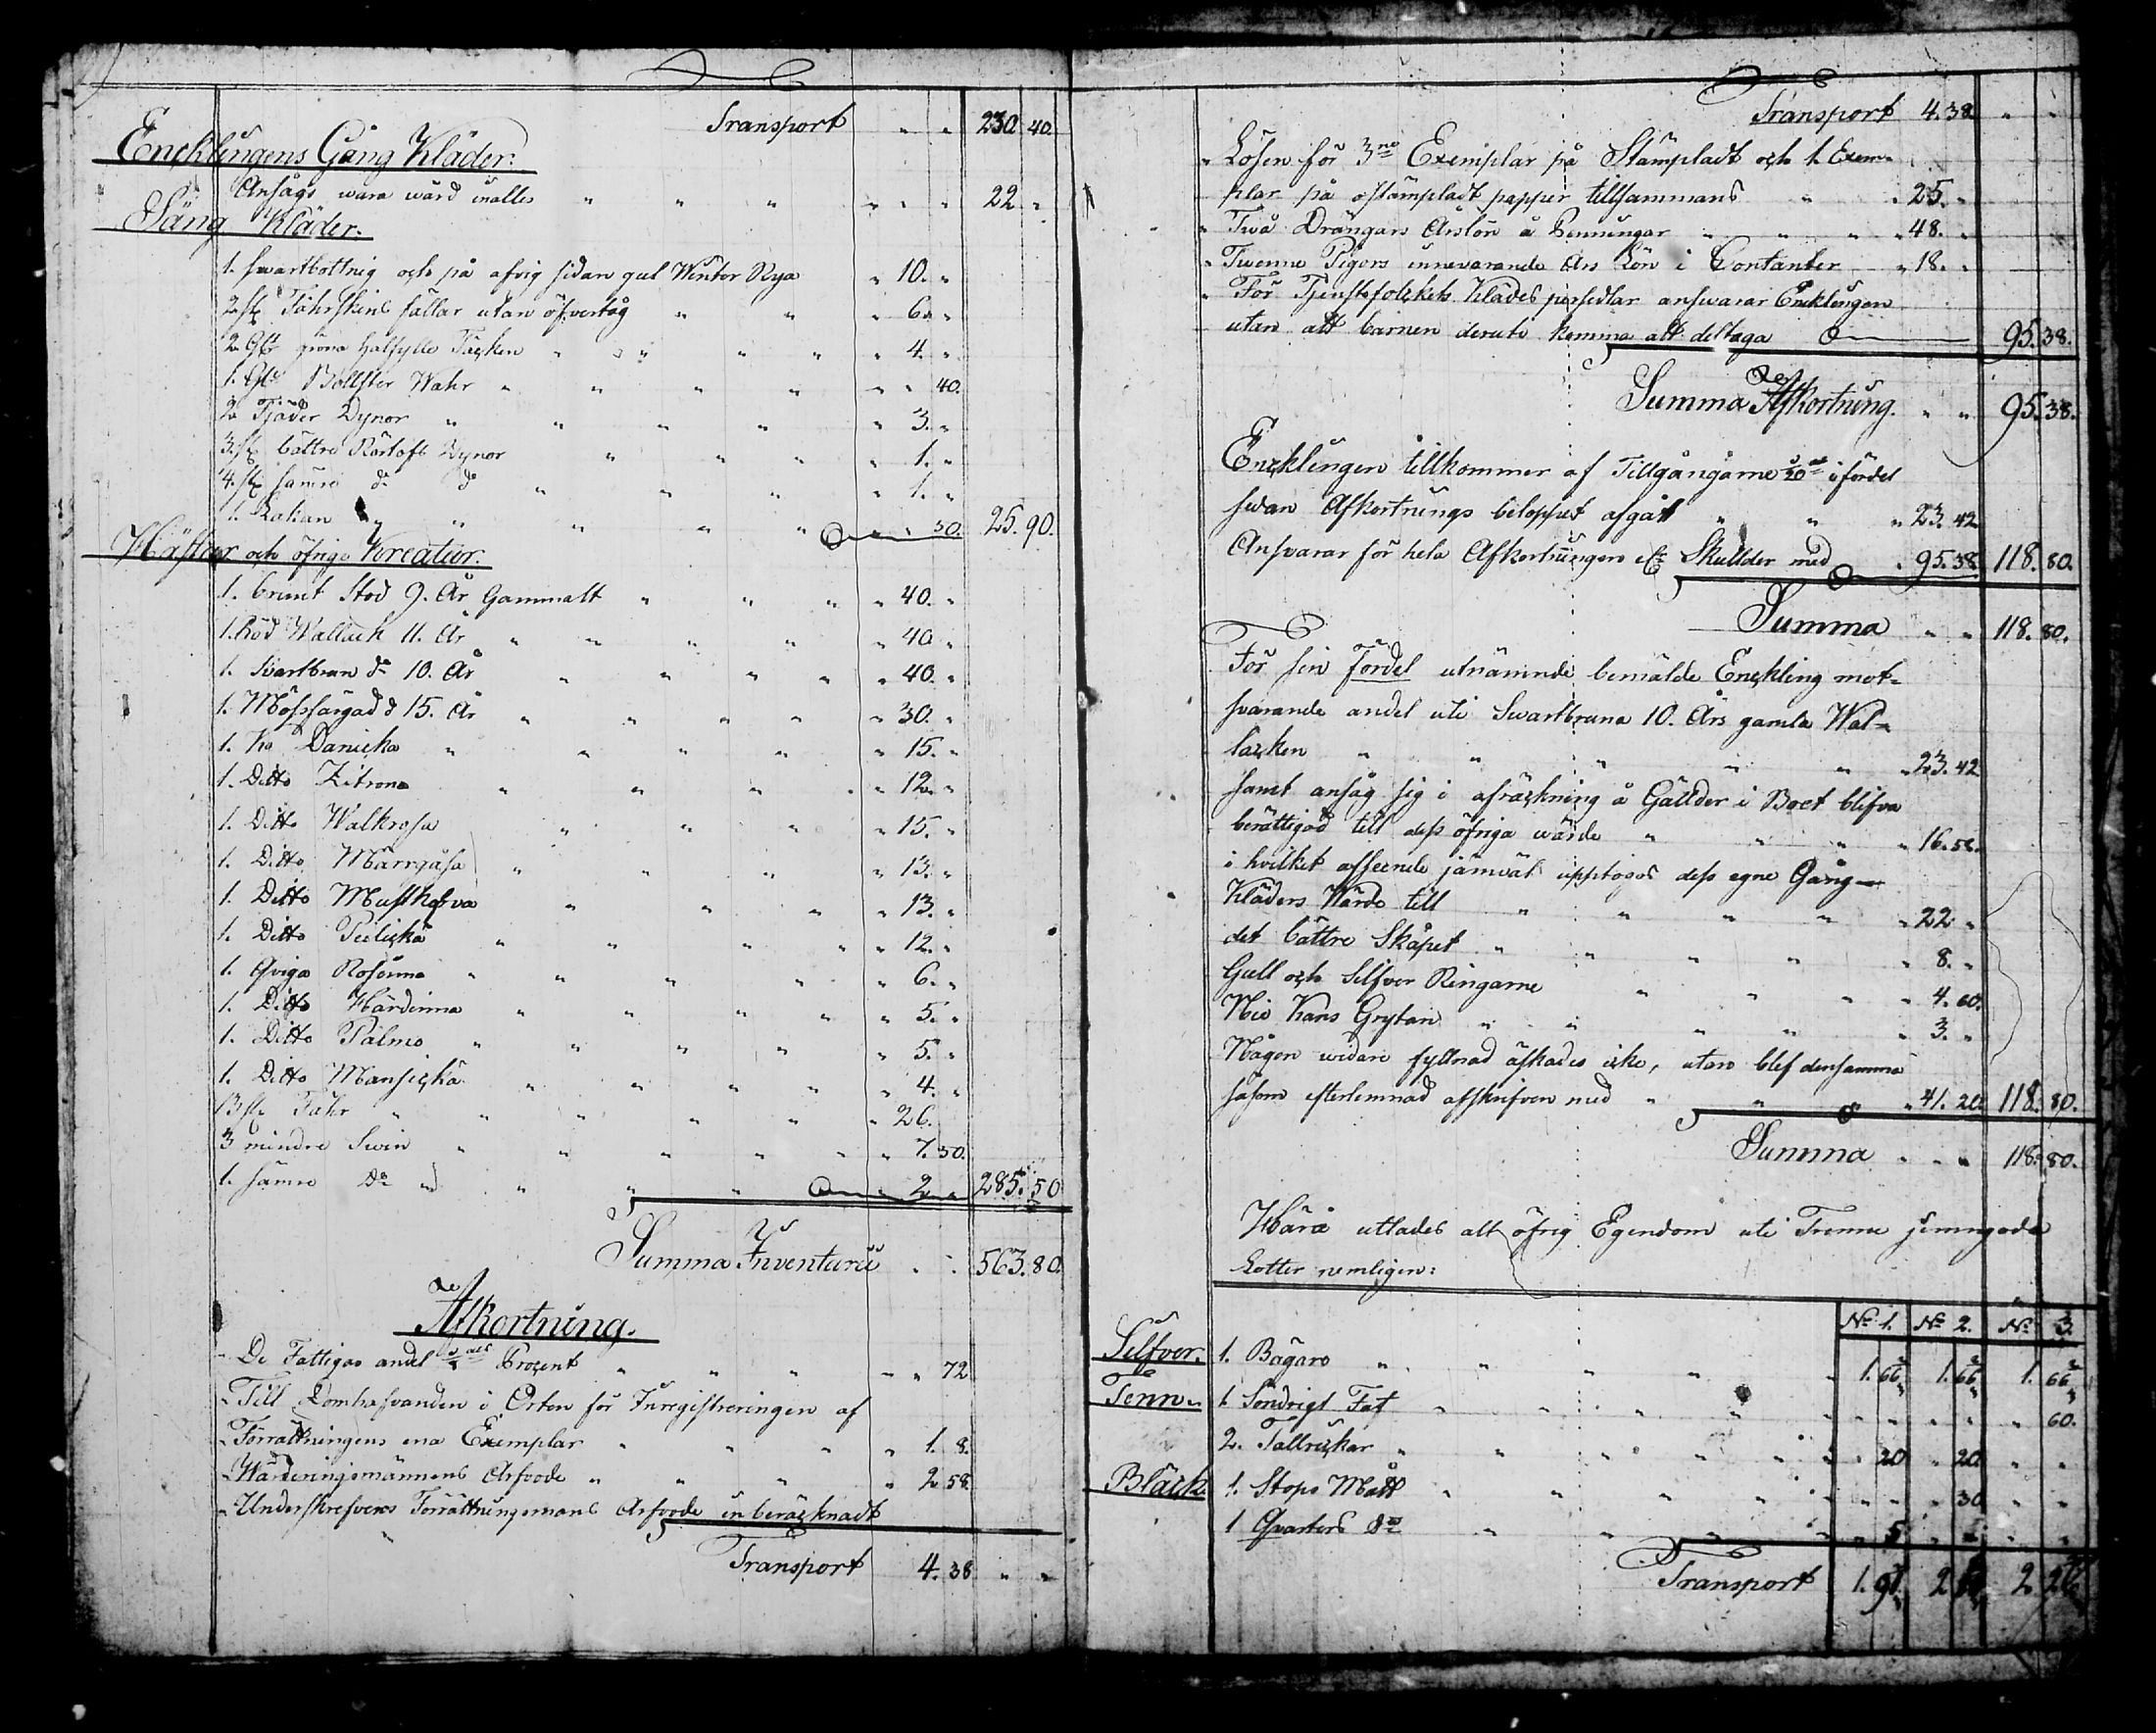 Transport " " 230. 40.
Encklingens Gång Kläder.
Ansågs wara wärd inalles " " " " " " 22. "
Säng Kläder.
1. swartbottnig och på afvig sidan gul Winter Rya " 10. "
2 st. Fåhrskins fällar utan öfvertåg " " " 6. "
2 Gl. gröna halfylle Täcken " " " " " 4. "
1. Gl. Bollster Wahr " " " " " " 40.
2 Tjäder Dynor " " " " " 3. "
3. st. bättre Rårtofs Dynor " " " " 1. "
4. st. sämre d:o d:o " " " " 1. "
1. Lakan " " " " " " 50. 25. 90.
Hästar och öfriga Kreatur.
1. brunt Stod 9. År Gammalt " " " " 40. "
1. Röd Wallack 11. År " " " " " 40 "
1. Svartbrun d:o 10. År " " " " " 40. "
1. Mössfärgad d:o 15. År " " " " " 30. "
1. Ko Danicka " " " " " 15. "
1. Ditto Zitrona " " " " " 12. "
1. Ditto Walkrosa " " " " 15. "
1. Ditto Märrgåsa " " " " 13. "
1. Ditto Mustkorva " " " " 13. "
1. Ditto Piilickä " " " " " 12. "
1. Qviga Rosenna " " " " " 6. "
1. Ditto Härdinna " " " " " 5. "
1. Ditto Palmo " " " " " 5. "
1. Ditto Mansickä " " " " " 4. "
13 st. Fåhr " " " " " " 26.
3 mindre Swin " " " " " " 7. 50.
1. sämre D:o " " " " " 2 " 285. 50
Summa Inventarii " " 563. 80.
Afkortning.
- De Fattigas andel Procent " " " " " 72
- Till Domhafvanden i Orten för Inregistreringen af
- Förrättningens ena Exemplar " " " " 1. 8.
- Wärderingsmännens Arfvode " " " " 2. 58.
- Underskrefvens Förrättningsmans Arfvode inberäcknadt
Transport 4. 38 " "
Transport 4. 38. " "
" Lösen för 3ne Exemplar på Stämpladt och 1. Exem-
plar på ostämpladt papper tillsammans " " 25. "
" Twå Drängars Årslön å Penningar " " " " 48. "
" Twenne Pigors innevarande Års Lön i Contanter " 18. "
" För Tjenstefolckets Klädes persedlar answarar Encklingen
utan att barnen deruti komma att deltaga 95. 38.
Summa Afkortning. " " 95. 38.
Encklingen tillkommer af Tillgångarne i fördel
sedan Afkortnings beloppet afgått " " " 23. 42
Ansvarar för hela Afkortningen Skullder med " 95. 38. 118. 80.
Summa " " 118. 80.
För sin Fördel utnämnde bemälde Enckling mot-
svarande andel uti Swartbruna 10. Års gamla Wal-
lacken " " " " " " 23. 42
samt ansåg sig i afräckning å Gällder i Boet blifva
berättigad till dess öfriga wärde " " " " 16. 58.
i hvilket afseende jämväl upptogos dess egne Gång-
Kläders Wärde till " " " " " 22 "
det bättre Skåpet " " " " " 8. "
Gull och Silfver Ringarne " " " " 4. 60.
Nio Kans Grytan " " " " " 3. "
Någon widare fyllnad äskades icke, utan blef densamma
såsom efterlemnad afskrifven med " " " " 41. 20. 118. 80.
Summa " " " 118. 80.
Härå utlades all öfrig Egendom uti Trenne jemngoda
Lotter nemligen:
No 1. No 2. No 3.
Silfver. 1. Bägare " " " " " 1. 66 1. 66 1. 66
Tenn. 1. Söndrigt Fat " " " " " " " " " 60.
2. Tallrickar " " " " " " 20 " 20 " "
Bläck. 1. Stops Mått " " " " " " " 30 " "
1 Qvarters D:o " " " " " 5 " " " "
Transport 1. 91. 2 2. 26